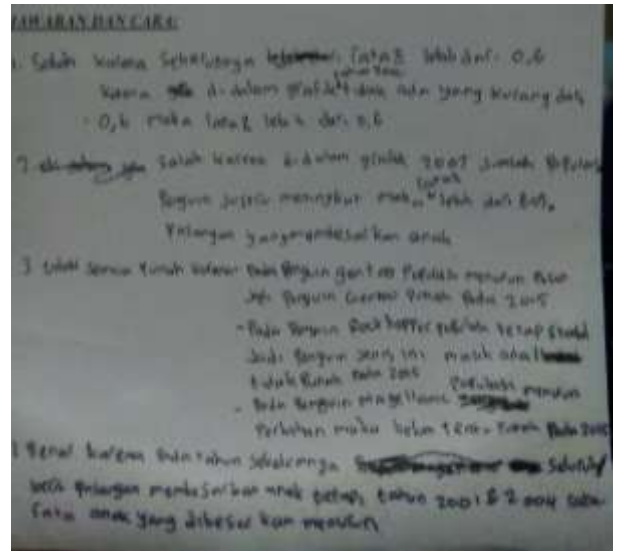 JAWABAN DAN CARA:
1. Salah karena seharusnya rata2 lebih dari 0,6
tahun 2000
karena di dalam grafik tidak ada yang kurang dari
0,6 maka rata2 lebih dari 0,6
2. Salah karena didalam grafik 2007 Jumlah Populasi
Penguin justru meningkat maka rata2 lebih dari 80%
Pasangan yang membesarkan anak
3. tidak semua Punah karena Pada Penguin gentoo Populasi menurun
Jadi Penguin Gentoo Punah Pada 2015
- Pada Penguin Rockhopper populasi tetap stabil
Jadi Penguin jenis ini masih ada
tidak Punah Pada 2015
- Pada Penguin magellanic Populasi menurun
Perlahan maka belum tentu Punah Pada 2015
Benar karena Pada tahun sebelumnya seluruh
Pasangan membesarkan anak tetapi tahun 2001 & 2004 rata-
rata anak yang dibesarkan menurun